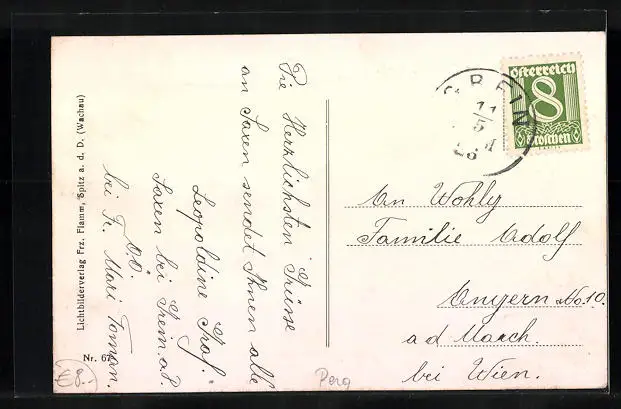 Die Herzlichsten Grüsse
an Saxen sendet Ihnen alle
Leopoldine Grof.
Saxen bei Grein. a.D.
O.Ö.
bei Fr. Mari Toman.
Lichtbilderverlag Frz. Flamm, Spitz a. d. D. (Wachau)
Nr. 67
€8.-
Perg
GREIN
11
5
26
Österreich
8
Groschen
An Wohly
Familie Adolf
Angern No. 10.
a d March.
bei Wien.